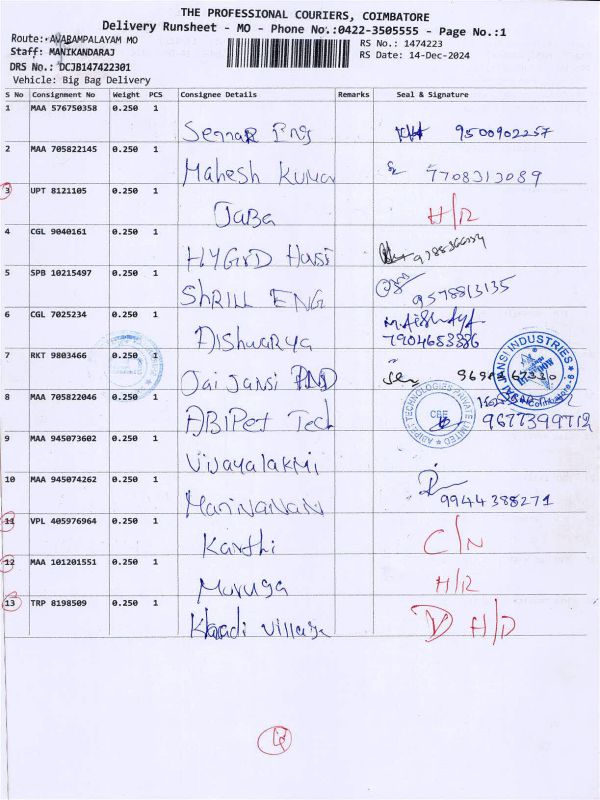 THE PROFESSIONAL COURIERS, COIMBATORE
Delivery Runsheet - MO - Phone No.:0422-3505555 - Page No.:1
Route: AVARAMPALAYAM MO
RS No.: 1474223
Staff: MANIKANDARAJ
RS Date: 14-Dec-2024
DRS No.: DCJB147422301
Vehicle: Big Bag Delivery
S No Consignment No Weight PCS Consignee Details Remarks Seal & Signature
1 MAA 576750358 0.250 1
Eng 9500902257
2 MAA 705822145 0.250 1
Mahesh Kumar 7708313089
3 UPT 8121105 0.250 1
JABA H/R
4 CGL 9040161 0.250 1
HYGrD Hassi
5 SPB 10215497 0.250 1
ShRILL ENG 9578813135
6 CGL 7025234 0.250 1
AIShwarya 7904653386
7 RKT 9803466 0.250 1
Jai Jansi IND
JAI JANSI INDUSTRIES
8 MAA 705822046 0.250 1
ABIPet Tech 9677399712
ADIPET TECHNOLOGIES PRIVATE LIMITED
CBE
9 MAA 945073602 0.250 1
Vijayalakmi
10 MAA 945074262 0.250 1
ManiVANAN 9944388271
11 VPL 405976964 0.250 1
Karthi C/N
12 MAA 101201551 0.250 1
Muruga H/R
13 TRP 8198509 0.250 1
Khadi Village H/D